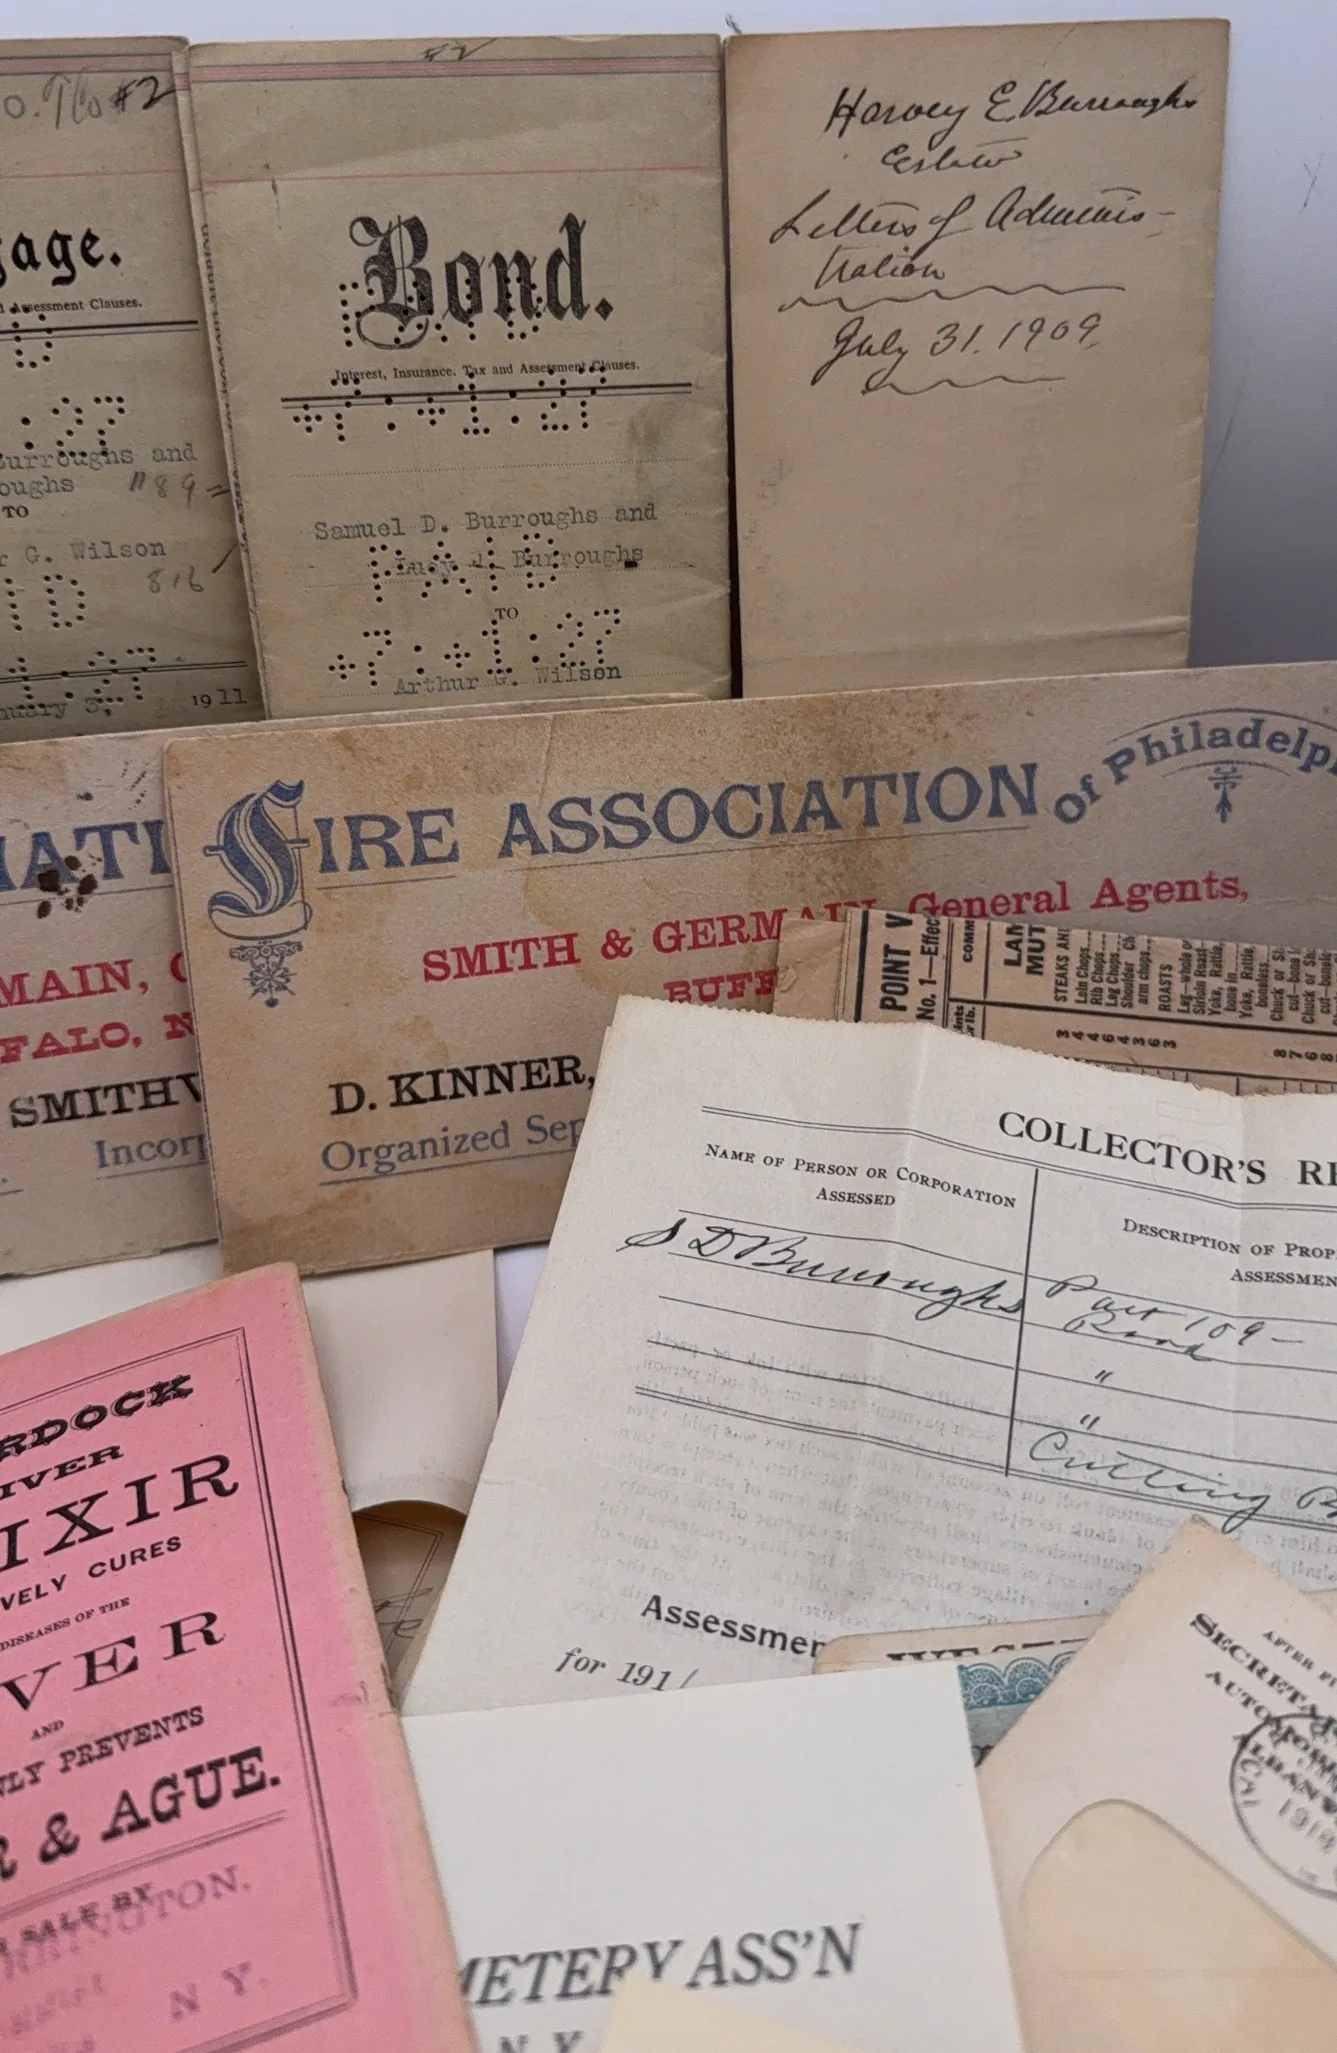 #2
gage.
d Assessment Clauses.
D
:27
Burroughs and
oughs "89=
TO
r G. Wilson
816
ID
1:27
nuary 3, 1911
#2
Bond.
PAID
Interest, Insurance, Tax and Assessment Clauses.
+7:+1:27
Samuel D. Burroughs and
Lucy J. Burroughs
PAID
TO
+7:+1:27
Arthur G. Wilson
Harvey E Burroughs
Estate
Letters of Adminis-
tration
July 31. 1909.
IATI
MAIN,
FALO, N
SMITHV
Incorp
FIRE ASSOCIATION Of Philadelph
SMITH & GERMAIN, General Agents,
BUFF
D. KINNER,
Organized Sep
POINT V
No. 1—Effec
COMM
LAM
MUT
STEAKS AND
Loin Chops
Rib Chops
Leg Chops
Shoulder Ch
arm chops
ROASTS
Leg—whole o
Sirloin Roast
Yoke, Rattle,
bone in
Yoke, Rattle,
boneless
Chuck or Sh
COLLECTOR'S RE
NAME OF PERSON OR CORPORATION
ASSESSED
DESCRIPTION OF PROP
ASSESSMEN
S D Burroughs
Part 109-
Road
"
"
Assessmen
for 1911
RDOCK
IVER
IXIR
VELY CURES
DISEASES OF THE
VER
AND
NLY PREVENTS
R & AGUE.
SALE BY
N.Y.
AFTER
SECRETA
AUTOMOBI
ALBANY
1918
METERY ASS'N
N.Y.